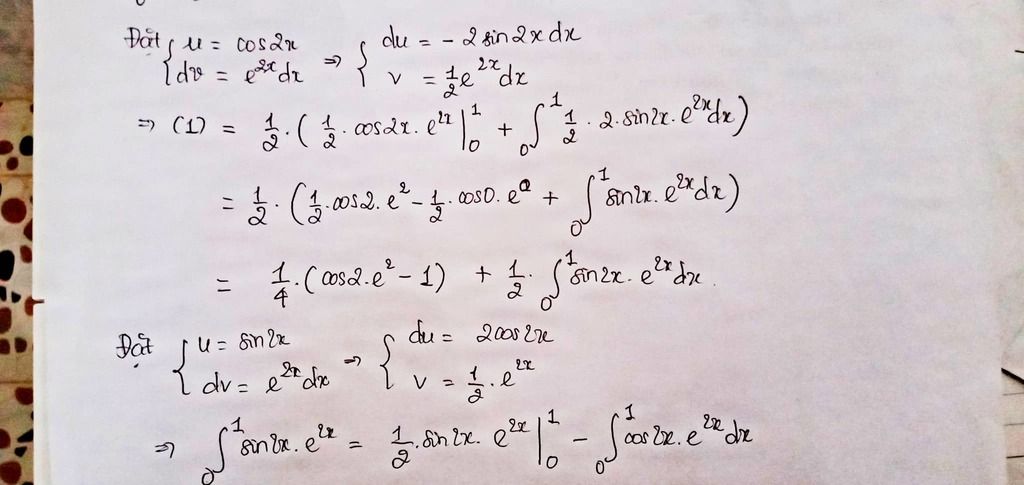 Đặt { u = cos2x => { du = - 2 sin2x dx
{ dv = e^{2x} dx { v = \frac{1}{2} e^{2x} dx
=> (1) = \frac{1}{2} . ( \frac{1}{2} . cos2x . e^{2x} |_0^1 + ∫_0^1 \frac{1}{2} . 2 . sin2x . e^{2x} dx )
= \frac{1}{2} . ( \frac{1}{2} . cos2 . e^2 - \frac{1}{2} . cos0 . e^0 + ∫_0^1 sin2x . e^{2x} dx )
= \frac{1}{4} . ( cos2 . e^2 - 1 ) + \frac{1}{2} . ∫_0^1 sin2x . e^{2x} dx .
Đặt { u = sin2x => { du = 2cos2x
{ dv = e^{2x} dx { v = \frac{1}{2} . e^{2x}
=> ∫_0^1 sin2x . e^{2x} = \frac{1}{2} . sin2x . e^{2x} |_0^1 - ∫_0^1 cos2x . e^{2x} dx